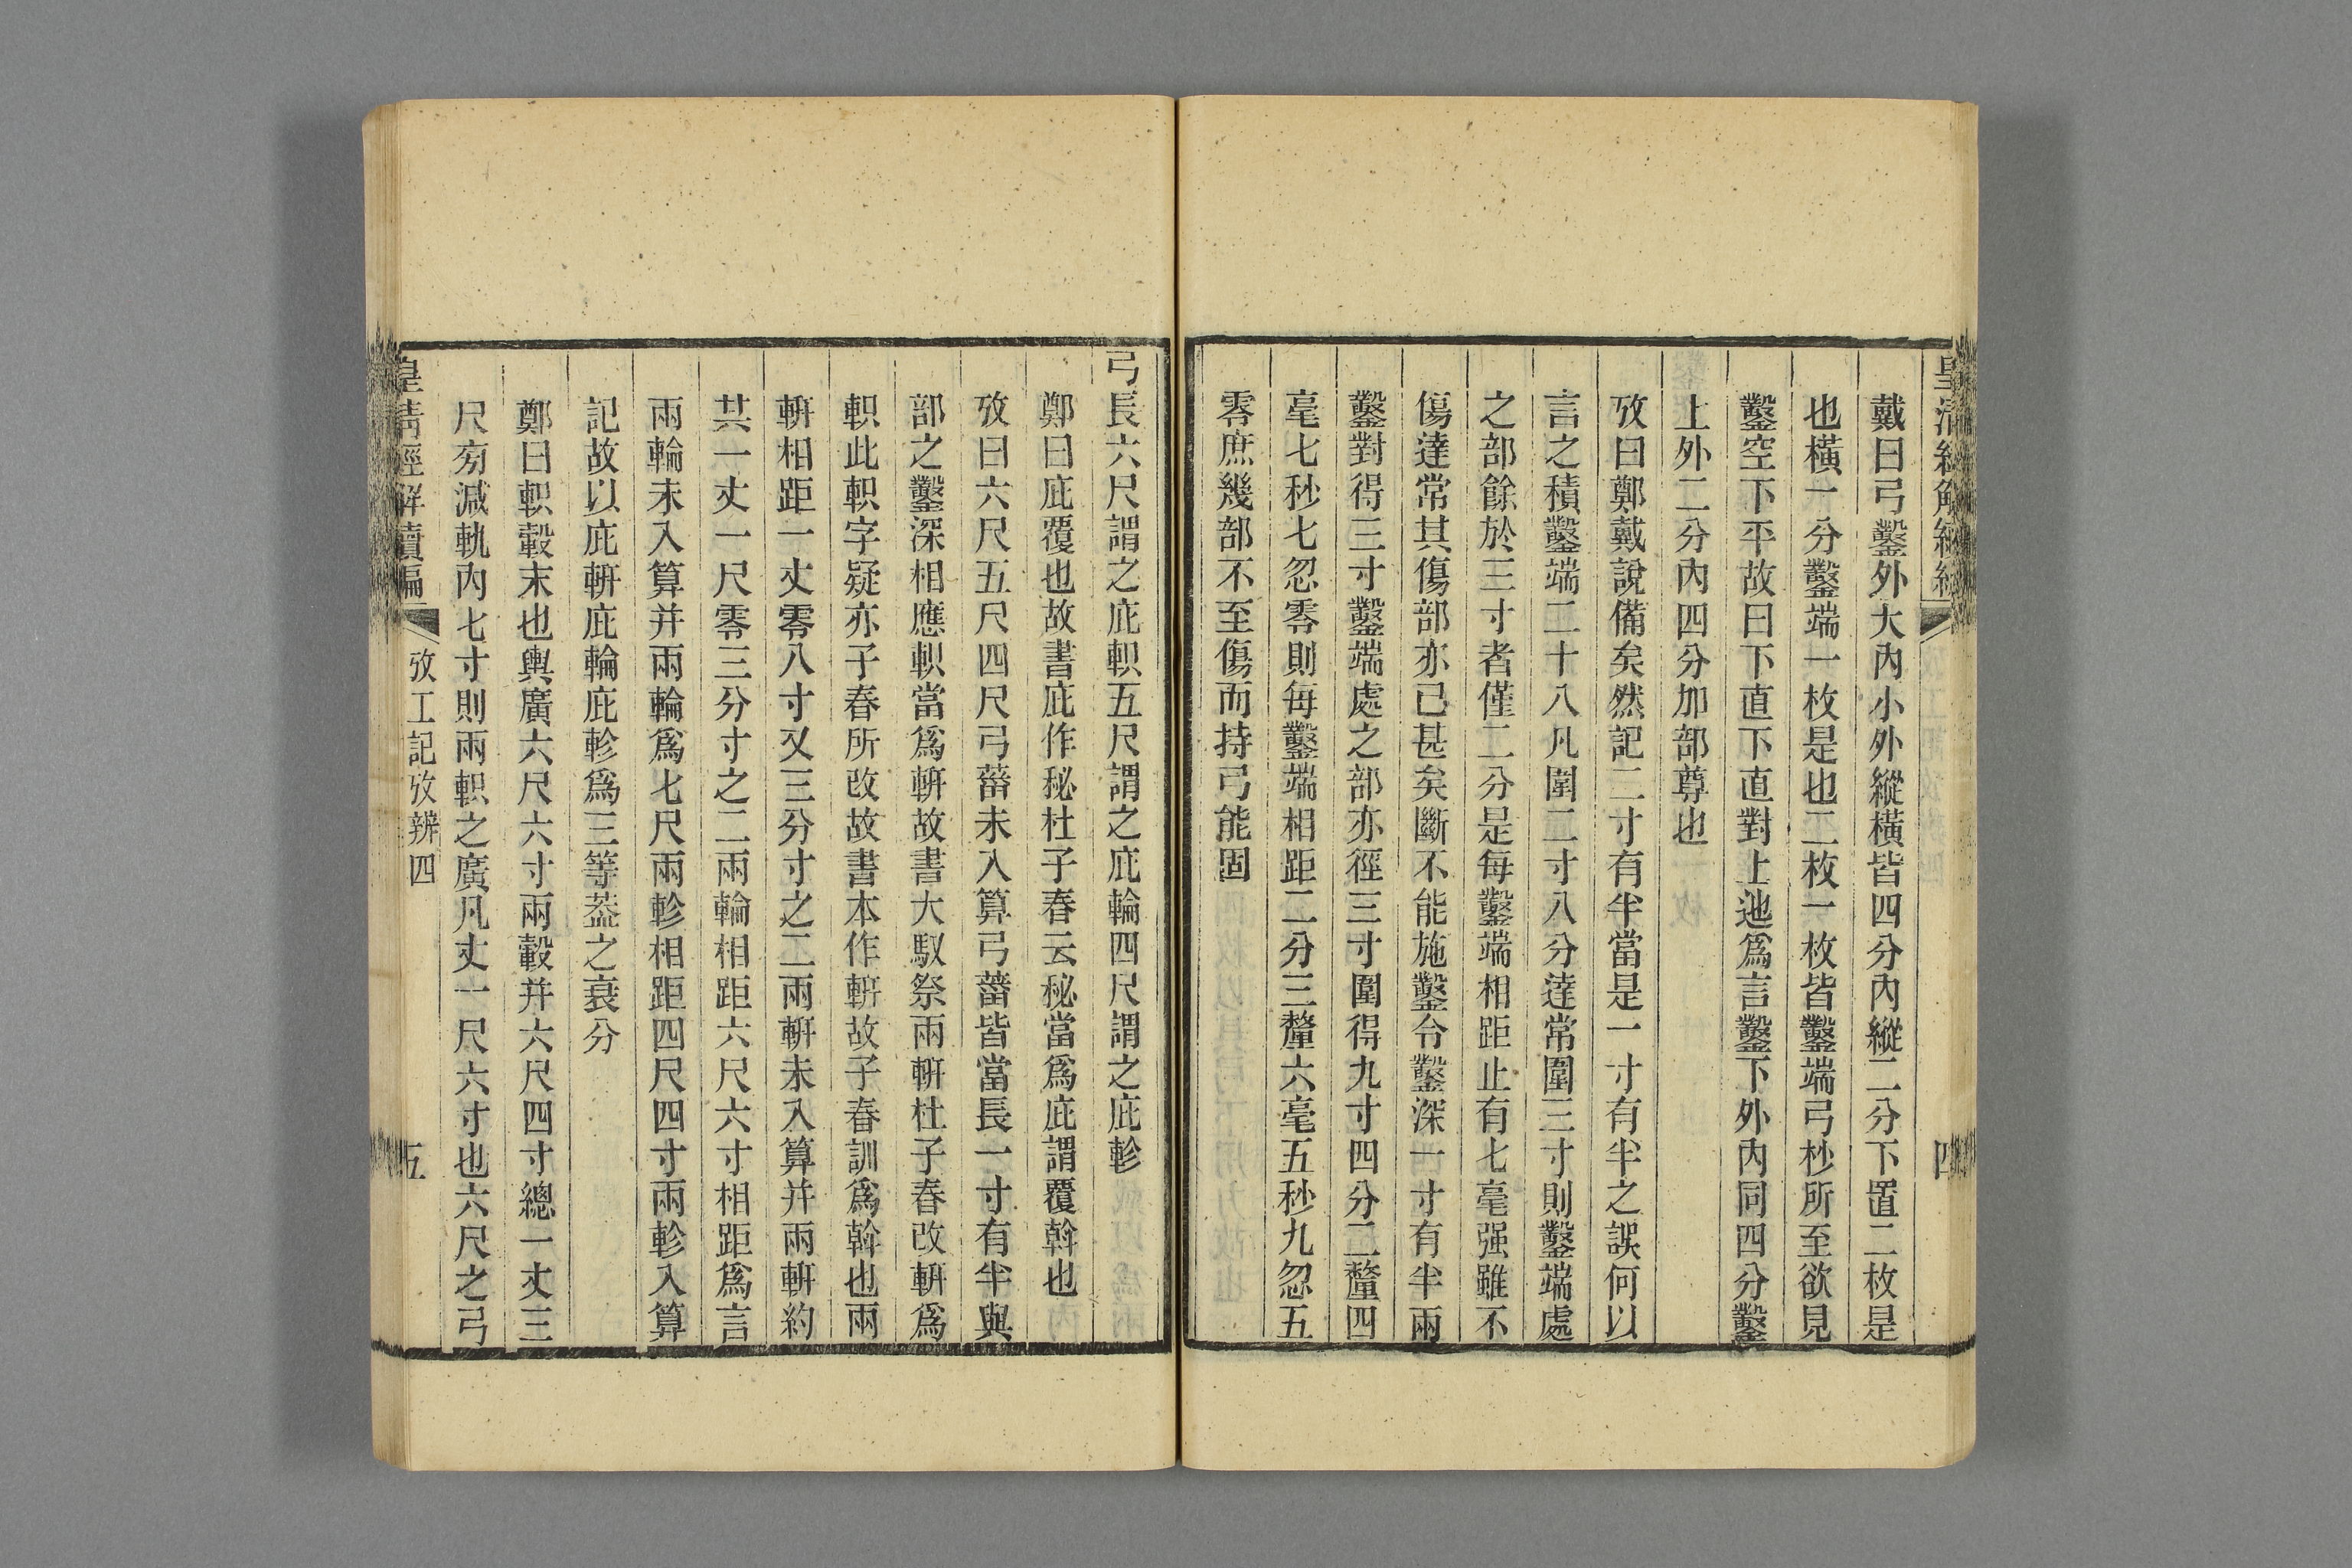 戴曰弓鑿外大內小外縱橫皆四分內縱二分下置二枚是
也橫一分鑿端一枚是也二枚一枚皆鑿端弓杪所至欲見
鑿空下平故曰下直下直對上迆爲言鑿下外內同四分鑿
上外二分內四分加部尊也
攷曰鄭戴說備矣然記二寸有半當是一寸有半之誤何以
言之積鑿端二十八凡圍二寸八分達常圍三寸則鑿端處
之部餘於三寸者僅二分是每鑿端相距止有七毫强雖不
傷達常其傷部亦已甚矣斷不能施鑿令鑿深一寸有半兩
鑿對得三寸鑿端處之部亦徑三寸圍得九寸四分二釐四
毫七秒七忽零則每鑿端相距二分三釐六毫五秒九忽五
零庶幾部不至傷而持弓能固
弓長六尺謂之庇軹五尺謂之庇輪四尺謂之庇軫
鄭曰庇覆也故書庇作秘杜子春云秘當爲庇謂覆斡也
攷曰六尺五尺四尺弓蕾未入算弓蕾皆當長一寸有半與
部之鑿深相應軹當爲軿故書大馭祭兩軿杜子春改軿爲
軹此軹字疑亦子春所改故書本作軿故子春訓爲斡也兩
軿相距一丈零八寸又三分寸之二兩軿未入算并兩軿約
共一丈一尺零三分寸之二兩輪相距六尺六寸相距爲言
兩輪未入算并兩輪爲七尺兩軫相距四尺四寸兩軫入算
記故以庇軿庇輪庇軫爲三等葢之衰分
鄭曰軹轂末也輿廣六尺六寸兩轂并六尺四寸總一丈三
尺旁減軌內七寸則兩軹之廣凡丈一尺六寸也六尺之弓
皇淸經解續編
攷工記攷辨四
五